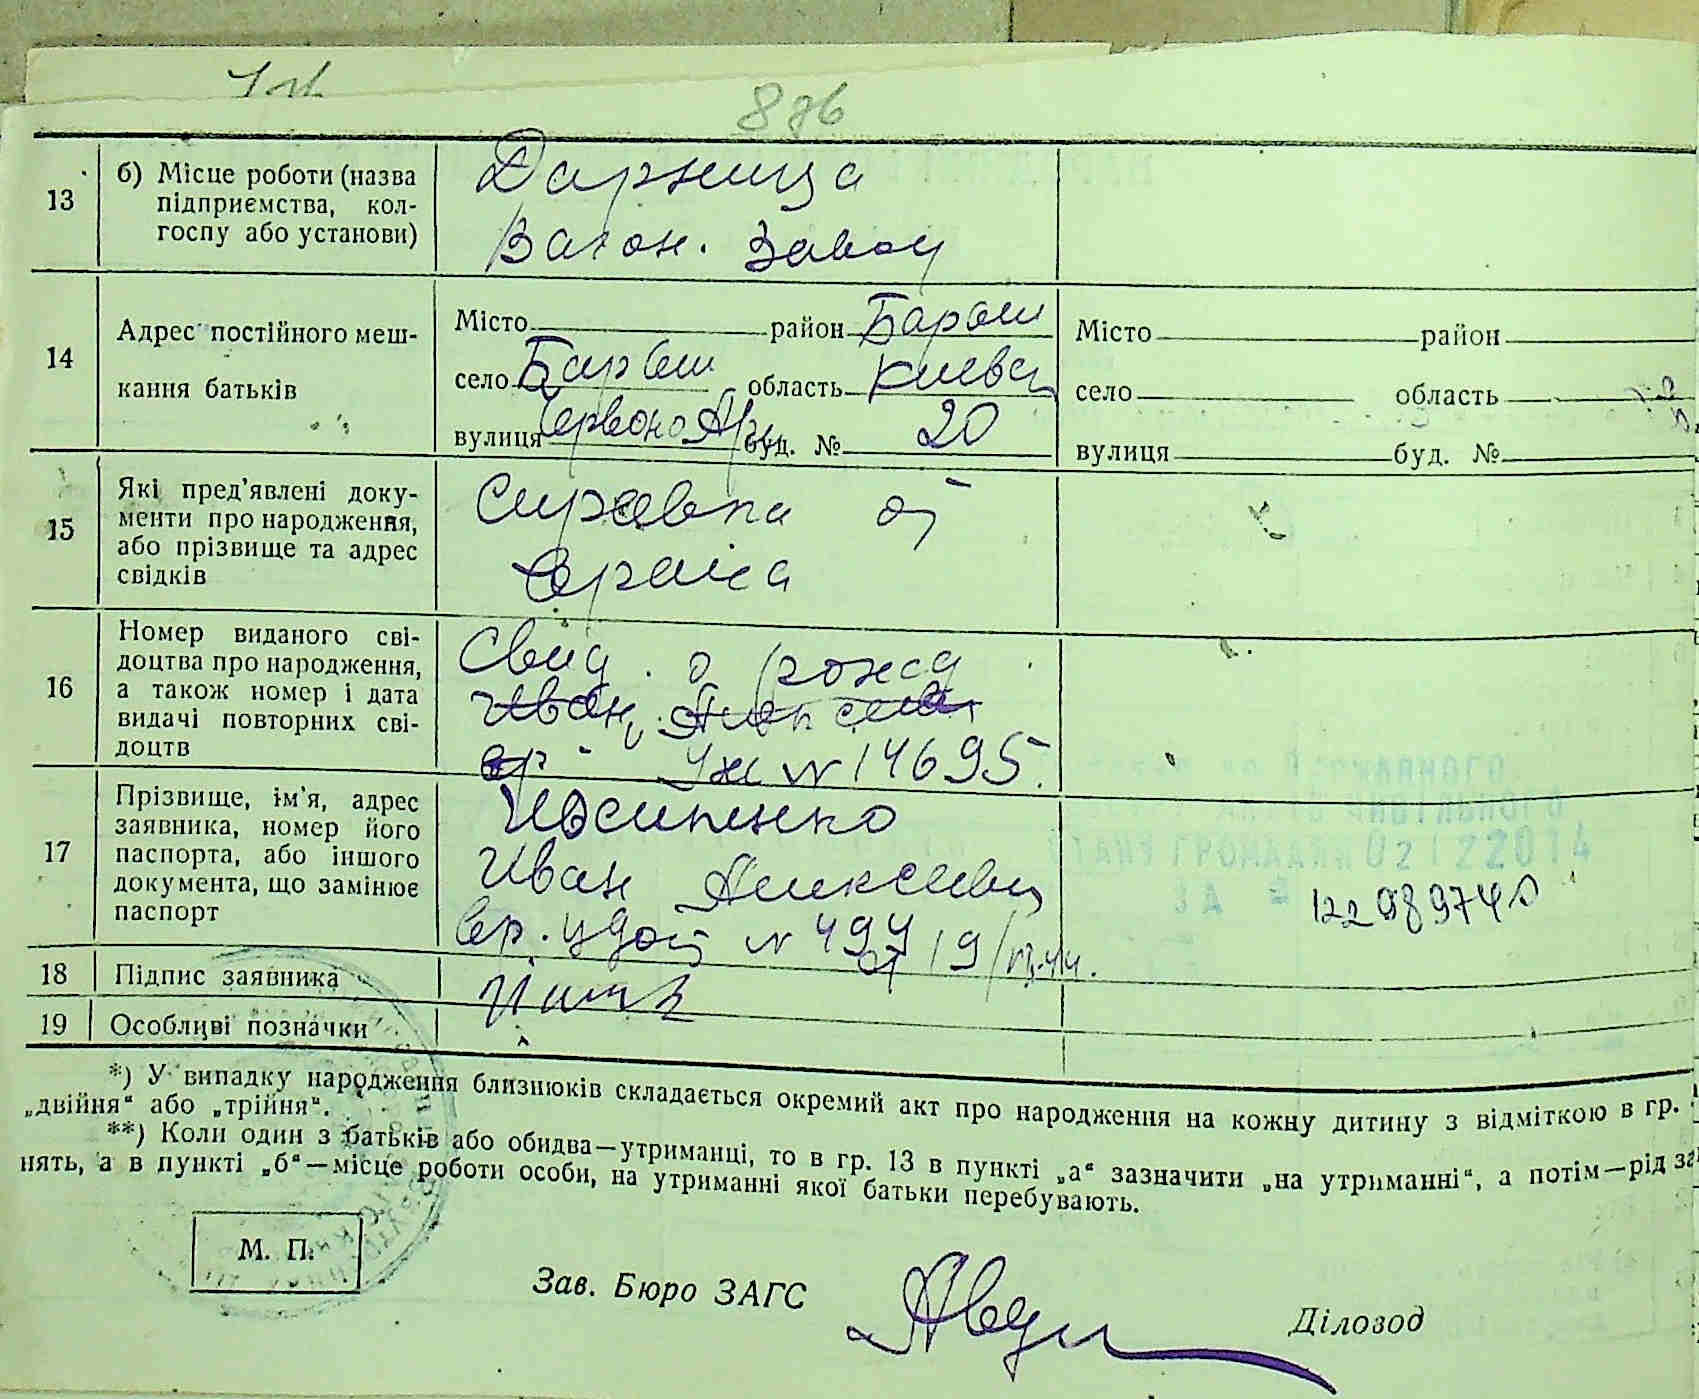 876
13
б) Місце роботи (назва
підприємства, кол-
госпу або установи)
Дарница
Вагон. Завод
14
Адрес постійного меш-
кання батьків
Місто район Барыш
село Барыш область Киевск
вулиця Червоно Арм буд. № 20
Місто район
село область
вулиця буд. №
15
Які пред'явлені доку-
менти про народження,
або прізвище та адрес
свідків
Справка от
врача
16
Номер виданого сві-
доцтва про народження,
а також номер і дата
видачі повторних сві-
доцтв
Свид. о рожд
Иван Алексеев
вр УЖ N 14695.
17
Прізвище, ім'я, адрес
заявника, номер його
паспорта, або іншого
документа, що замінює
паспорт
Иосипенко
Иван Алексеевич
Вр. удост N 499
от 19/
ДЕРЖАВНОГО
СТАНУ ГРОМАДЯН 02122014
ЗА №
18
Підпис заявника
19
Особливі позначки
*) У випадку народження близнюків складається окремий акт про народження на кожну дитину з відміткою в гр.
„двійня“ або „трійня“.
**) Коли один з батьків або обидва—утриманці, то в гр. 13 в пункті „а“ зазначити „на утриманні“, а потім—рід за
нять, а в пункті „б“—місце роботи особи, на утриманні якої батьки перебувають.
М. П.
Зав. Бюро ЗАГС
Діловод